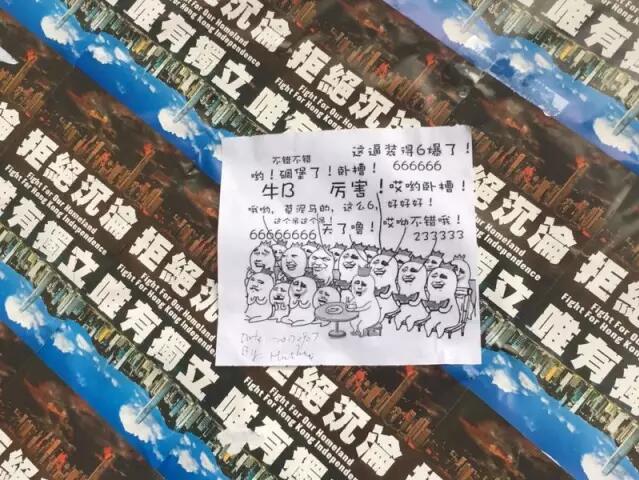 拒絕沉淪 唯有獨立
Fight For Our Homeland
Fight For Hong Kong Independence
拒絕沉淪 唯有獨立
Fight For Our Homeland
Fight For Hong Kong Independence
拒絕沉淪 唯有獨立
Fight For Our Homeland
Fight For Hong Kong Independence
这逼装得6爆了!
不错不错
666666
哟!碉堡了!卧槽!
牛B
厉害!
哎哟卧槽!
哦哟,草泥马的,这么6,好好好!
这个吊这个吊!
66666666
天了噜!
哎呦不错哦!
233333
Date
By